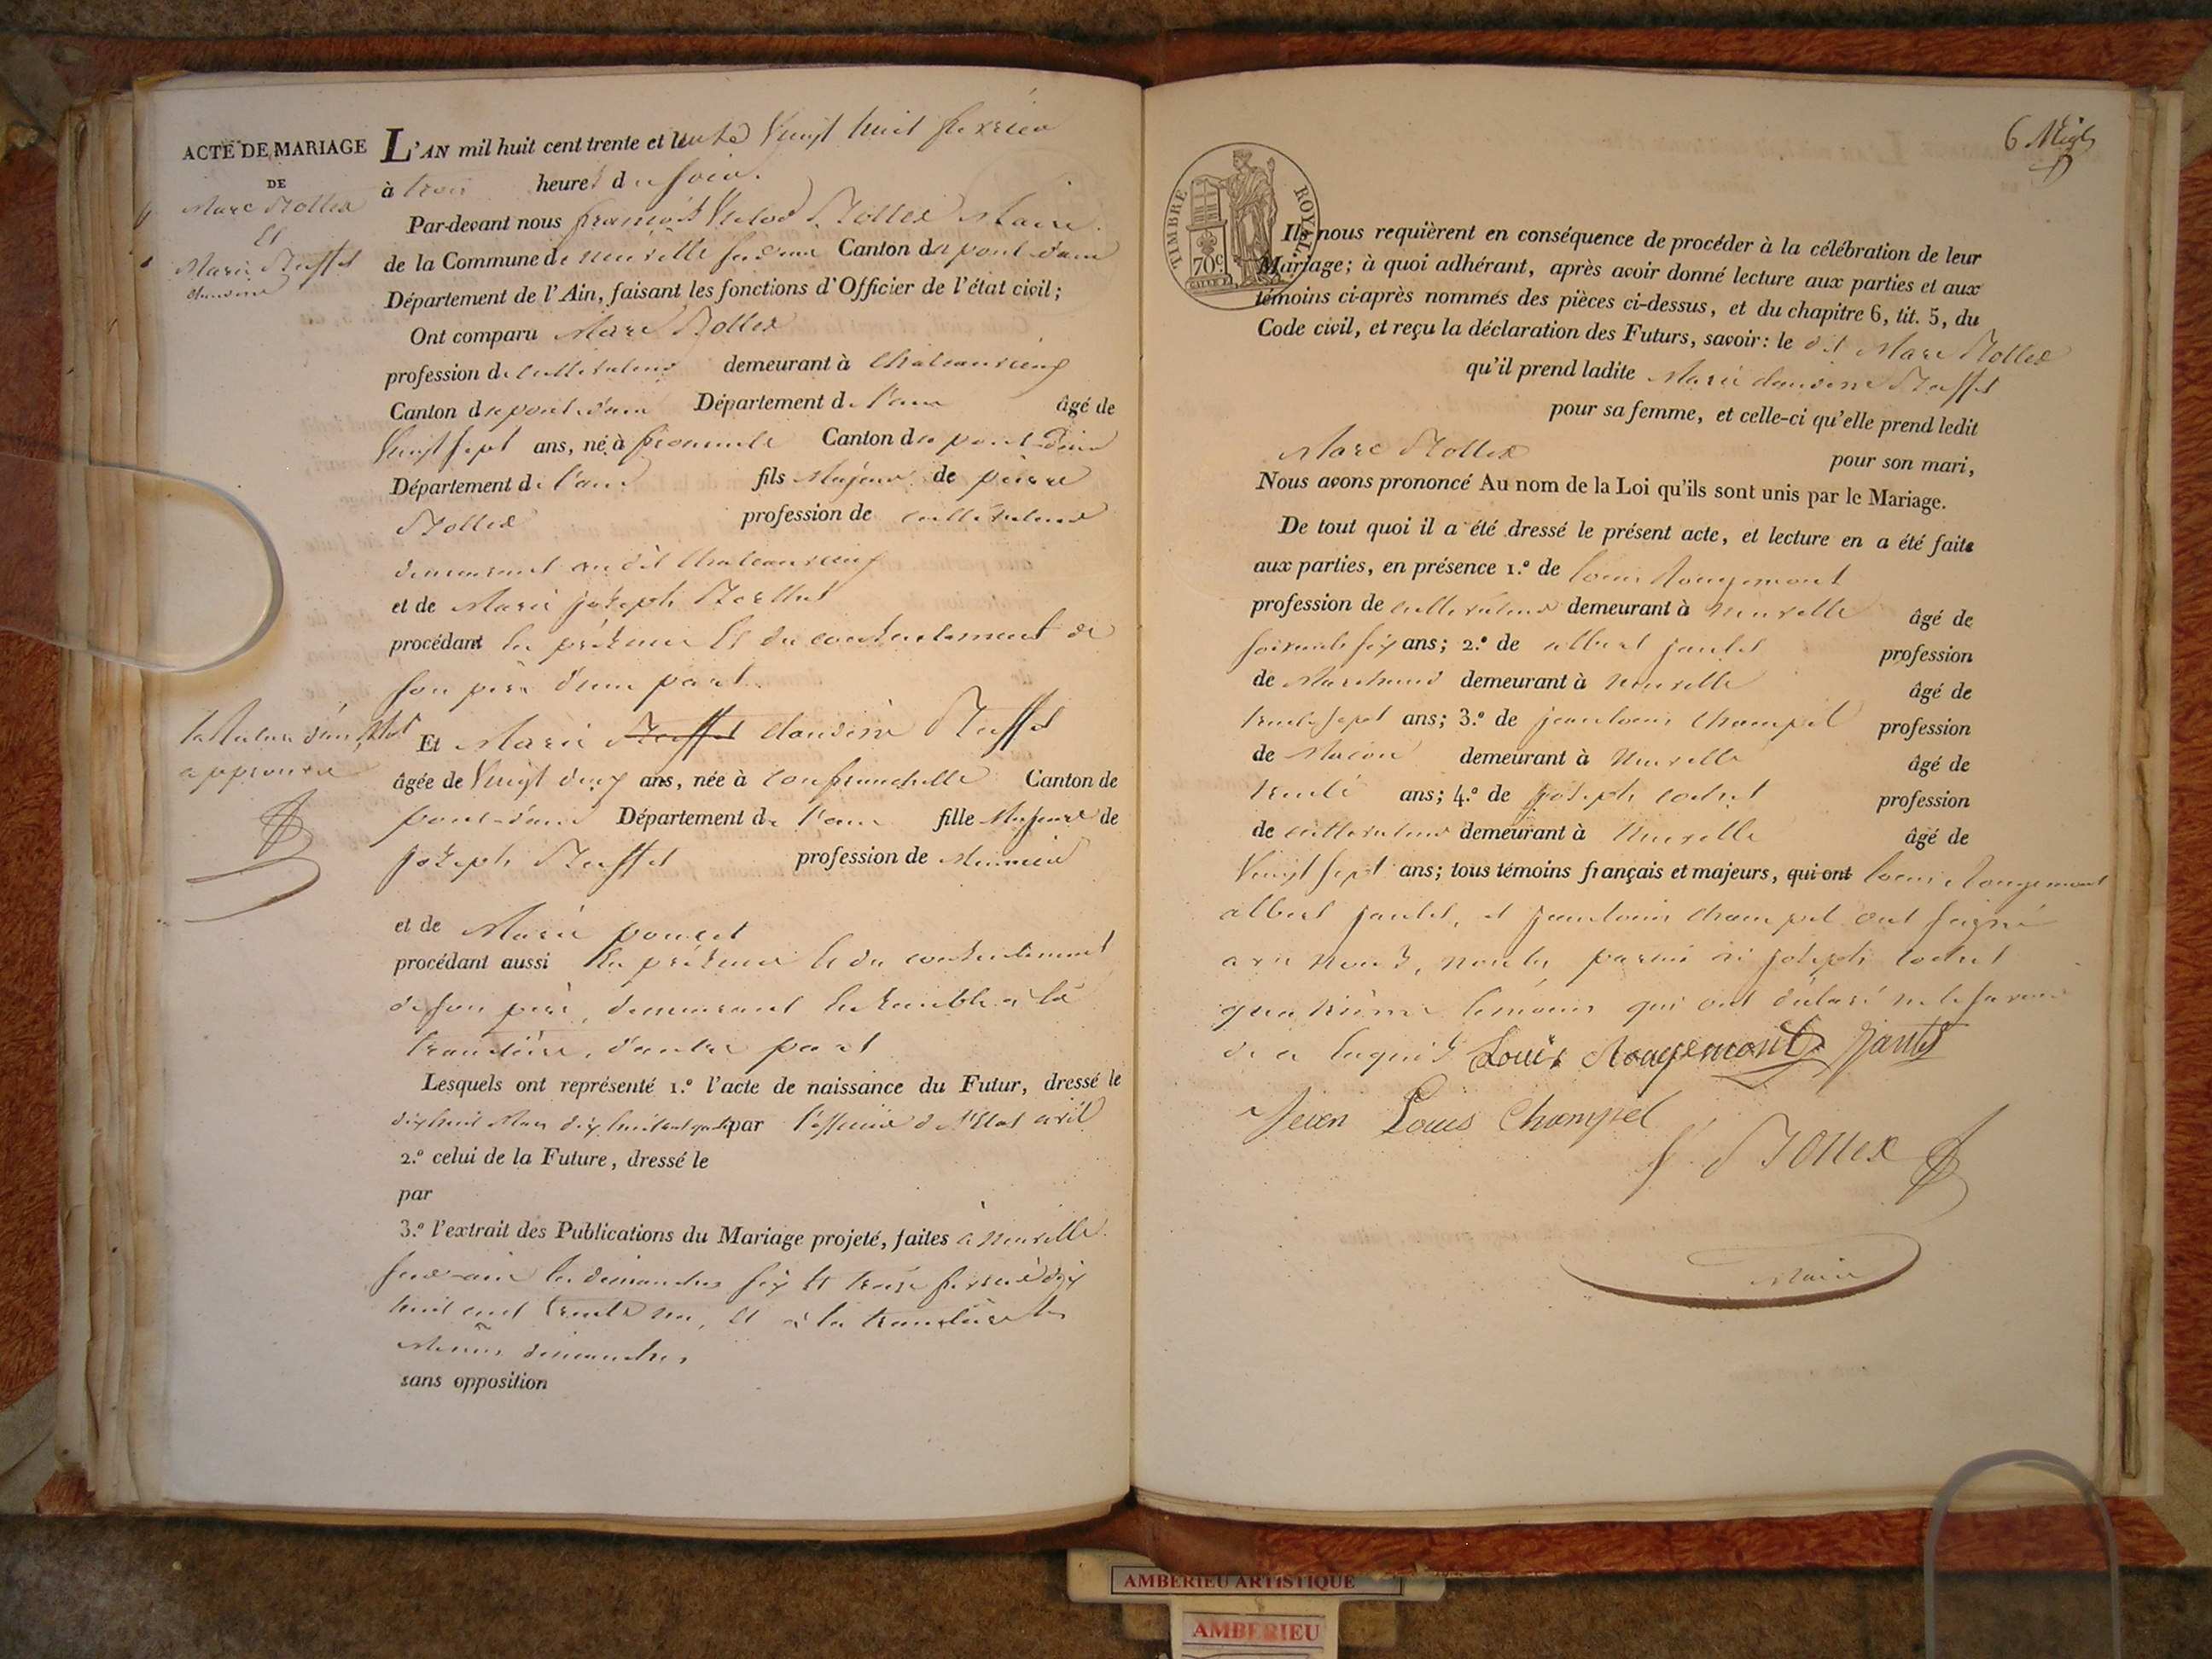 ACTE DE MARIAGE
DE
Marc Bollex
Et
Marie Buffet
claudine
L'AN mil huit cent trente et un le Vingt huit fevrier
à trois heures du soir.
Par-devant nous françois Victor Bollex Maire
de la Commune de neuville sur ain Canton de pont-d'ain
Département de l'Ain, faisant les fonctions d'Officier de l'état civil;
Ont comparu Marc Bollex
profession de cultivateur demeurant à Chateauvieux
Canton de pont-d'ain Département de l'ain âgé de
Vingt sept ans, né à fromente Canton de pont-d'ain
Département de l'ain fils Majeur de pierre
Bollex profession de cultivateur
demeurant audit Chateauvieux
et de Marie joseph
procédant En présence Et du consentement de
son père d'une part.
la Rature d'un Mot
approuvée
Et Marie Buffet claudine Buffet
âgée de Vingt deux ans, née à Confranchette Canton de
pont-d'ain Département de l'ain fille Majeure de
joseph Buffet profession de Meunier
et de Marie poncet
procédant aussi En présence Et du consentement
de son père, demeurant Ensemble à la
tranclière, d'autre part
Lesquels ont représenté 1.º l'acte de naissance du Futur, dressé le
dix huit Mars dix huit cent quatre par l'officier de l'Etat civil
2.º celui de la Future, dressé le
par
3.º l'extrait des Publications du Mariage projeté, faites à neuville
sur-ain les dimanches six Et treize fevrier dix
huit cent trente un, Et à la tranclière les
Mêmes dimanches
sans opposition
6
TIMBRE ROYAL
70c
Ils nous requièrent en conséquence de procéder à la célébration de leur
Mariage; à quoi adhérant, après avoir donné lecture aux parties et aux
témoins ci-après nommés des pièces ci-dessus, et du chapitre 6, tit. 5, du
Code civil, et reçu la déclaration des Futurs, savoir: le dit Marc Bollex
qu'il prend ladite Marie claudine Buffet
pour sa femme, et celle-ci qu'elle prend ledit
Marc Bollex pour son mari,
Nous avons prononcé Au nom de la Loi qu'ils sont unis par le Mariage.
De tout quoi il a été dressé le présent acte, et lecture en a été faite
aux parties, en présence 1.º de louis Rougemont
profession de cultivateur demeurant à neuville âgé de
soixante six ans; 2.º de albert jantet profession
de Marchand demeurant à neuville âgé de
trente sept ans; 3.º de jean louis Champel profession
de Maçon demeurant à Neuville âgé de
trente ans; 4.º de joseph cochet profession
de cultivateur demeurant à Neuville âgé de
Vingt sept ans; tous témoins français et majeurs, qui ont louis Rougemont
albert jantet, et jean louis Champel ont signé
avec nous, non les parties ni joseph cochet
quatrième témoin qui ont déclaré ne le savoir
de ce Enquis Louis Rougemont Jantet
Jean Louis Champel
f. Bollex
Maire
AMBERIEU ARTISTIQUE
AMBERIEU